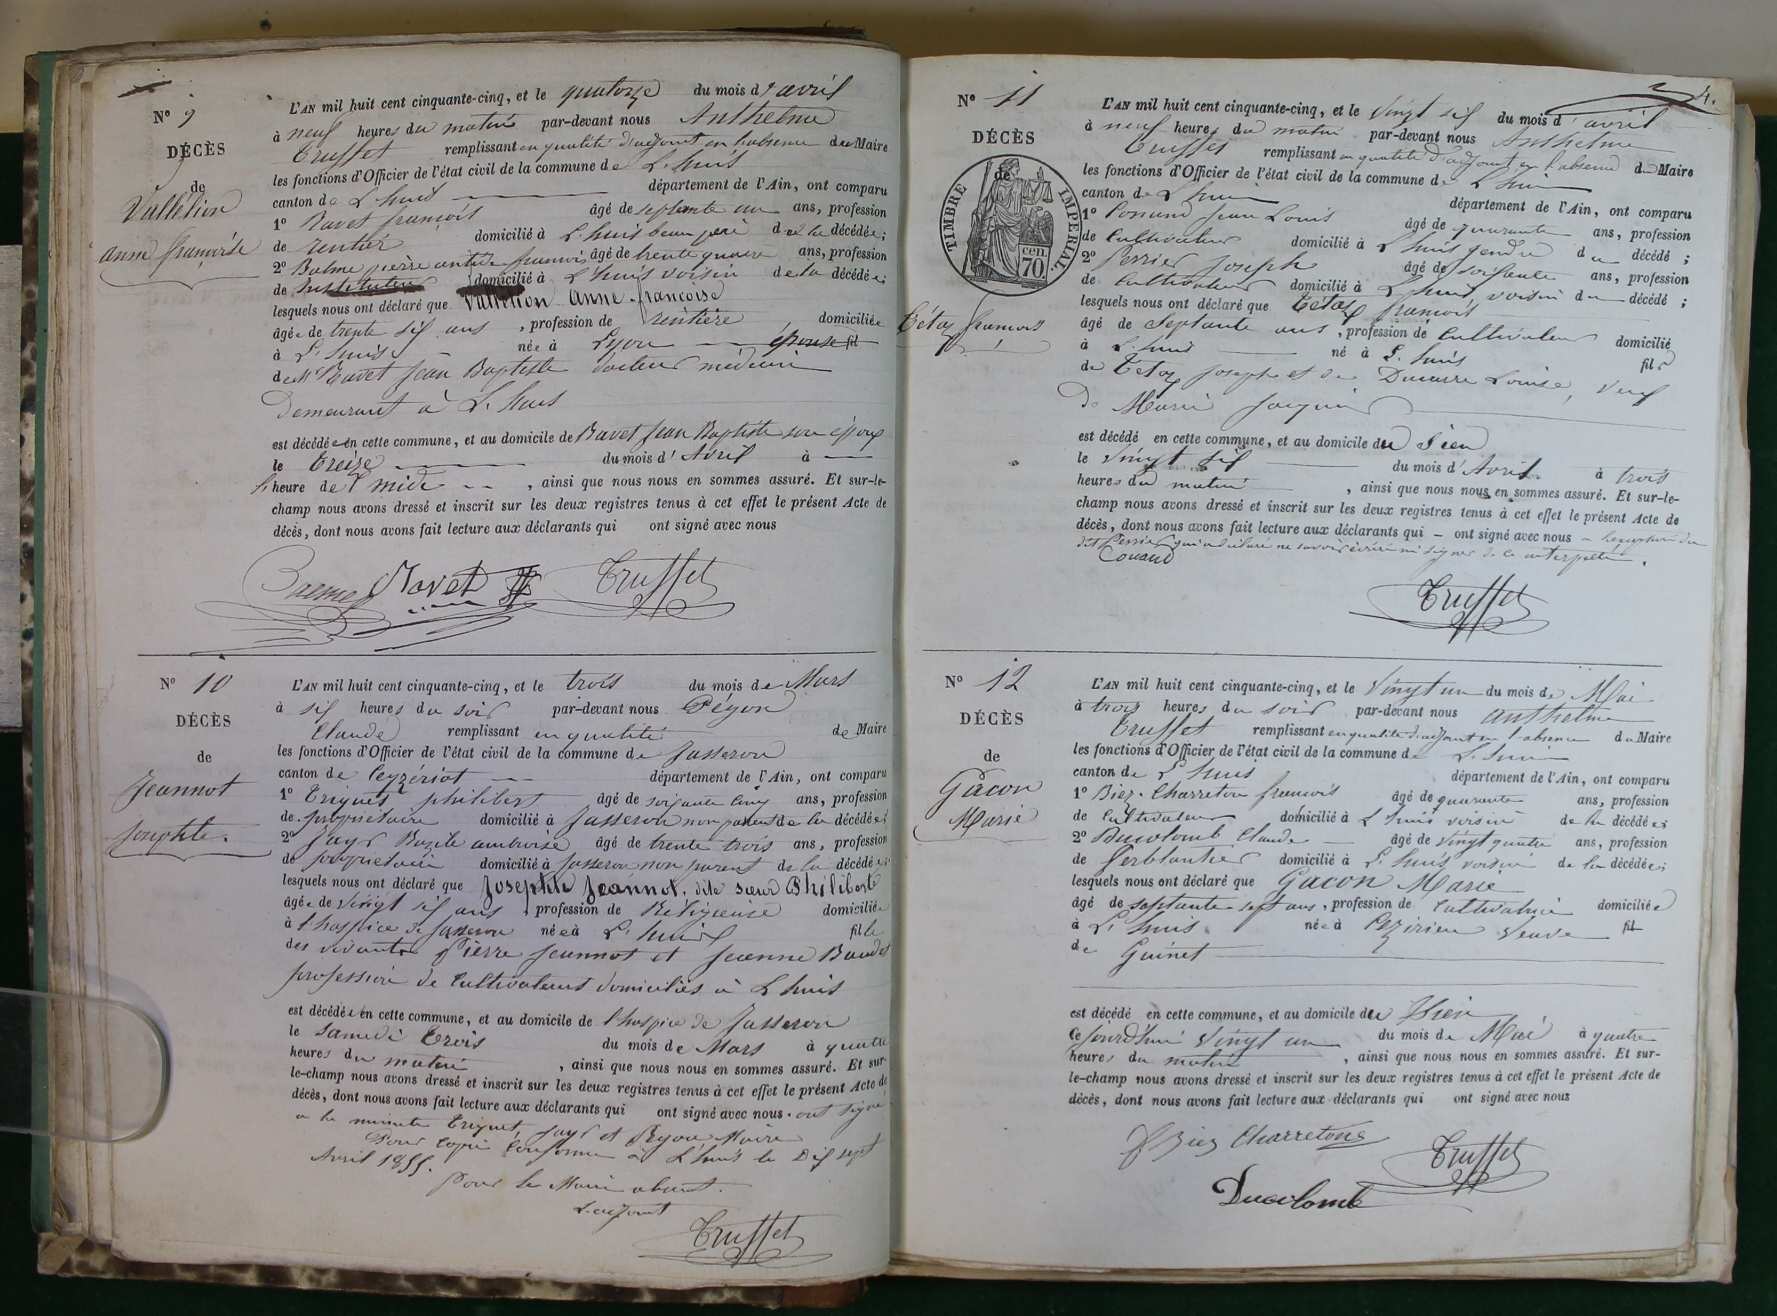 N° 9
DÉCÈS
de
Valletion
anne françoise
L'AN mil huit cent cinquante-cinq, et le quatorze du mois d'avril
à neuf heures du matin par-devant nous Anthelme
Truffet remplissant en qualité d'adjoint en l'absence du Maire
les fonctions d'Officier de l'état civil de la commune de L'huis
canton de L'huis département de l'Ain, ont comparu
1° Ravet françois âgé de septante un ans, profession
de rentier domicilié à L'huis beau pere de la décédée;
2° Balme pierre antide françois âgé de trente quatre ans, profession
de instituteur domicilié à L'huis voisin de la décédée;
lesquels nous ont déclaré que Valletion Anne françoise
âgée de trente six ans, profession de rentière domiciliée
à L'huis née à Lyon épouse fil
de Mr Ravet Jean Baptiste docteur médecin
demeurant à L'huis
est décédée en cette commune, et au domicile de Ravet Jean Baptiste son époux
le treize du mois d'Avril à
heure de midi, ainsi que nous nous en sommes assuré. Et sur-le-
champ nous avons dressé et inscrit sur les deux registres tenus à cet effet le présent Acte de
décès, dont nous avons fait lecture aux déclarants qui ont signé avec nous
Balme Ravet Truffet
N° 10
DÉCÈS
de
Jeannot
Josephte.
L'AN mil huit cent cinquante-cinq, et le trois du mois de Mars
à six heures du soir par-devant nous Péyon
Claude remplissant en qualité de Maire
les fonctions d'Officier de l'état civil de la commune de Jasseron
canton de Ceyzériat département de l'Ain, ont comparu
1° Triquet philibert âgé de soixante cinq ans, profession
de propriétaire domicilié à Jasseron non parent de la décédée;
2° Jayr Bazile ambroise âgé de trente trois ans, profession
de propriétaire domicilié à Jasseron non parent de la décédée;
lesquels nous ont déclaré que Josephte Jeannot, dite sœur Philiberte
âgée de vingt six ans, profession de Religieuse domiciliée
à l'hospice de Jasseron née à L'huis fille
des vivants Pierre Jeannot et Jeanne Baudet
profession de Cultivateurs domiciliés à L'huis
est décédée en cette commune, et au domicile de l'hospice de Jasseron
le samedi trois du mois de Mars à quatre
heures du matin, ainsi que nous nous en sommes assuré. Et sur-
le-champ nous avons dressé et inscrit sur les deux registres tenus à cet effet le présent Acte de
décès, dont nous avons fait lecture aux déclarants qui ont signé avec nous. ont signé
a la minute Triquet, Jayr et Péyon Maire
Pour Copie Conforme à L'huis le Dix sept
Avril 1855.
Pour le Maire absent.
L'adjoint
Truffet
4.
N° 11
DÉCÈS
de
TIMBRE IMPÉRIAL
70 cen.
Tétaz françois
L'AN mil huit cent cinquante-cinq, et le vingt six du mois d'avril
à neuf heures du matin par-devant nous Anthelme
Truffet remplissant en qualité d'adjoint en l'absence du Maire
les fonctions d'Officier de l'état civil de la commune de L'huis
canton de L'huis département de l'Ain, ont comparu
1° Jean Louis âgé de quarante ans, profession
de Cultivateur domicilié à L'huis gendre du décédé;
2° Perrier Joseph âgé de soixante ans, profession
de Cultivateur domicilié à L'huis voisin du décédé;
lesquels nous ont déclaré que Tétaz françois
âgé de septante ans, profession de Cultivateur domicilié
à L'huis né à L'huis fils
de Tétaz Joseph et de Ducarre Louise, veuf
de Marie Jacquin
est décédé en cette commune, et au domicile du Sien
le vingt six du mois d'Avril à trois
heures du matin, ainsi que nous nous en sommes assuré. Et sur-le-
champ nous avons dressé et inscrit sur les deux registres tenus à cet effet le présent Acte de
décès, dont nous avons fait lecture aux déclarants qui – ont signé avec nous –
dit Perrier qui a déclaré ne savoir écrire ni signer de ce interpellé.
Truffet
N° 12
DÉCÈS
de
Gacon
Marie
L'AN mil huit cent cinquante-cinq, et le vingt un du mois de Mai
à trois heures du soir par-devant nous Anthelme
Truffet remplissant en qualité d'adjoint en l'absence du Maire
les fonctions d'Officier de l'état civil de la commune de L'huis
canton de L'huis département de l'Ain, ont comparu
1° Biez-Charreton françois âgé de quarante ans, profession
de Cultivateur domicilié à L'huis voisin de la décédée;
2° Ducolomb Claude âgé de vingt quatre ans, profession
de ferblantier domicilié à L'huis voisin de la décédée;
lesquels nous ont déclaré que Gacon Marie
âgé de septante sept ans, profession de Cultivatrice domiciliée
à L'huis née à veuve fil
de Guinet
est décédé en cette commune, et au domicile du Sien
Ce jourd'hui vingt un du mois de Mai à quatre
heures du matin, ainsi que nous nous en sommes assuré. Et sur-
le-champ nous avons dressé et inscrit sur les deux registres tenus à cet effet le présent Acte de
décès, dont nous avons fait lecture aux déclarants qui ont signé avec nous
Biez Charreton Truffet
Ducolomb